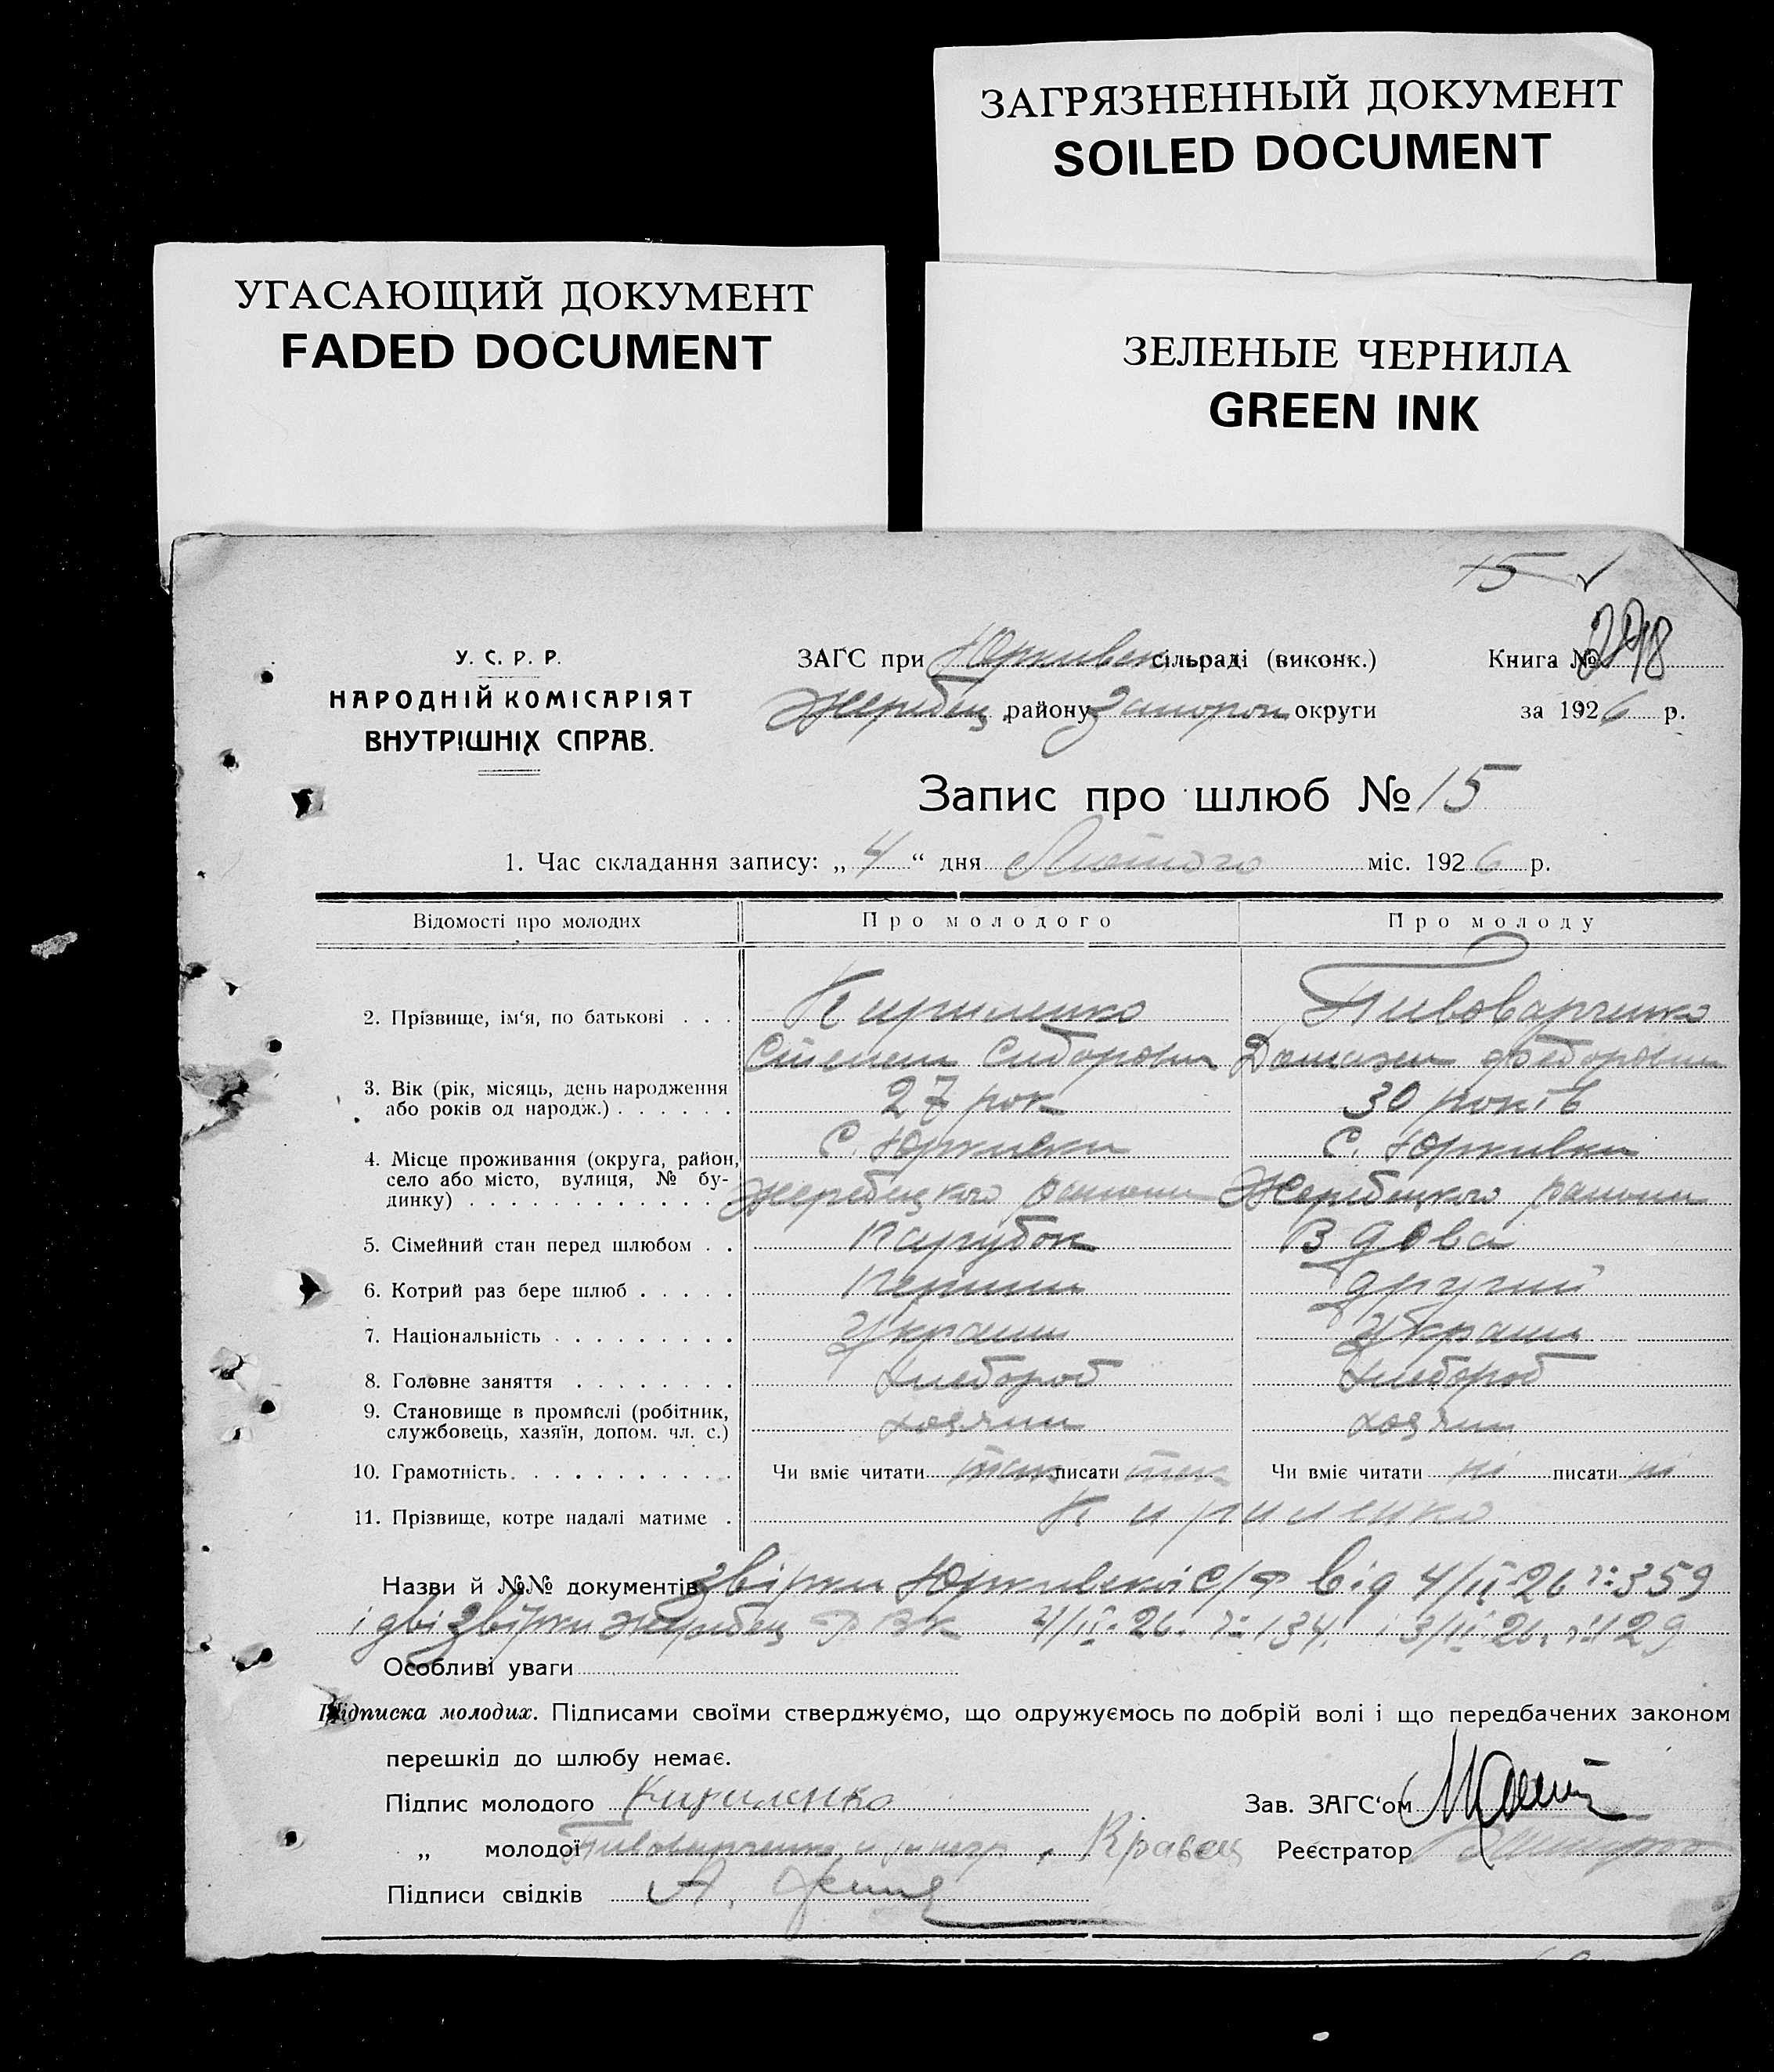 ЗАГРЯЗНЕННЫЙ ДОКУМЕНТ
SOILED DOCUMENT
УГАСАЮЩИЙ ДОКУМЕНТ
FADED DOCUMENT
ЗЕЛЕНЫЕ ЧЕРНИЛА
GREEN INK
15
У. С. Р. Р.
НАРОДНІЙ КОМІСАРІЯТ
ВНУТРІШНІХ СПРАВ.
ЗАГС при Юрківск сільраді (виконк.) Книга № 298
Жеребец. району Запорож округи за 1926 р.
Запис про шлюб № 15
1. Час складання запису: „ 4 “ дня Лютого міс. 1926 р.
Відомості про молодих Про молодого Про молоду
2. Прізвище, ім‘я, по батькові . . . Кириленко Пивоварченко
Степан Сидорович Домаха Федоровна
3. Вік (рік, місяць, день народження
або років од народж.) . . . . . . 27 рок 30 років
4. Місце проживання (округа, район,
село або місто, вулиця, № бу-
динку) . . . . . . . . . . . . С. Юркивки С. Юркивки
Жеребецкого району Жеребецкого району
5. Сімейний стан перед шлюбом . . Парубок Вдова
6. Котрий раз бере шлюб . . . . . Перший Другий
7. Національність . . . . . . . . . Украин Украин
8. Головне заняття . . . . . . . . Хлебороб Хлебороб
9. Становище в промислі (робітник,
службовець, хазяїн, допом. чл. с.) хозяин хозяин
10. Грамотність. . . . . . . . . . . Чи вміє читати так писати так Чи вміє читати ні писати ні
11. Прізвище, котре надалі матиме . Кириленко
Назви й №№ документів звірки Юркивскої С/Р від 4/II-26 №359
і дві звірки Жеребец РВК 4/II-26. № 134. і 3/II 26. №129
Особливі уваги
Підписка молодих. Підписами своїми стверджуємо, що одружуємось по добрій волі і що передбачених законом
перешкід до шлюбу немає.
Підпис молодого Кириленко Зав. ЗАГС‘ом
„ молодої Пивоварченко Кравец Реєстратор
Підписи свідків А.